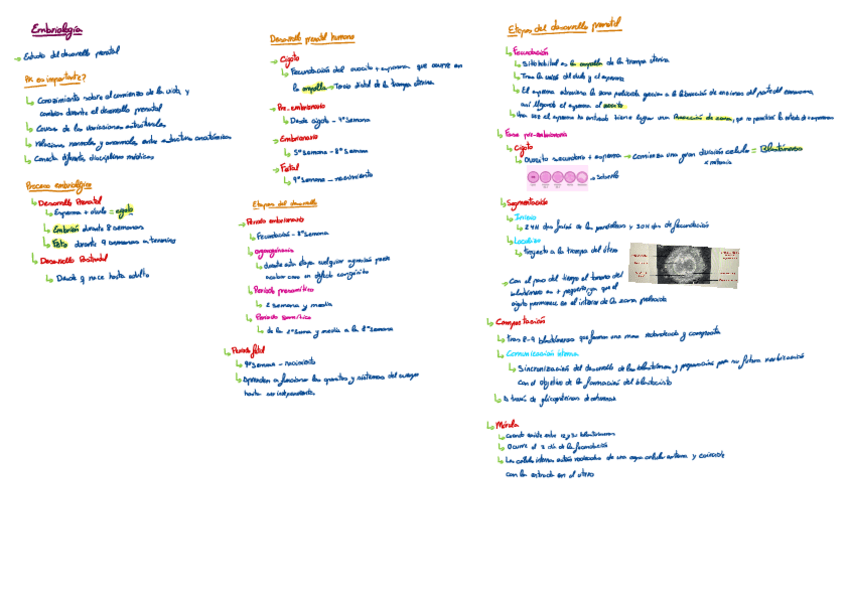 Embriología
→ Estudio del desarrollo prenatal
Pk es importante?
↳ Conocimiento sobre el comienzo de la vida, y
cambios durante el desarrollo prenatal
↳ Causa de las variaciones estructurales
↳ relaciona normales y anormales entre estructuras anatómicas
↳ Conecta diferentes disciplinas médicas
Proceso embriológico
↳ Desarrollo Prenatal
↳ Esperma + óvulo = cigoto
↳ Embrión durante 8 semanas
↳ Feto durante 9 semanas
↳ Desarrollo Postnatal
↳ Desde q nace hasta adulto
Desarrollo prenatal humano
→ Cigoto
↳ Fecundación del ovocito + esperma que ocurre en
la ampolla → Tercio distal de la trompa uterina
→ Pre-embrionario
↳ Desde cigoto - 4ª Semana
→ Embrionario
↳ 5ª Semana - 8ª Semana
→ Fetal
↳ 9ª Semana - nacimiento
Etapas del desarrollo
↳ Periodo embrionario
↳ Fecundación - 8ª Semana
↳ organogénesis
↳ durante esta etapa cualquier agresión puede
acabar como un déficit congénito
↳ Periodo presomítico
↳ 2 semana y media
↳ Periodo somítico
↳ de la 2ª Semana y media a la 8ª Semana
↳ Periodo fetal
↳ 9ª Semana - nacimiento
↳ Aprenden a funcionar los aparatos y sistemas del cuerpo
hasta ser independiente.
Etapas del desarrollo prenatal
↳ Fecundación
↳ Sitio habitual es la ampolla de la trompa uterina
↳ Tras la unión del óvulo y el esperma
↳ El esperma atraviesa la zona pelúcida gracias a la liberación de enzimas del
así llegando el esperma al ovocito
↳ Una vez el esperma ha entrado tiene lugar una Reacción de zona, que no permitirá la entrada de espermas
↳ Fase pre-embrionaria
↳ Cigoto
↳ Ovocito secundario + esperma → Comienza una gran división celular = Blastómeros
x mitosis
↳ Segmentación
↳ Inicio
↳ 24H dps de los pronúcleos y 30H dps de fecundación
↳ Localiza
↳ trayecto a la trompa del útero
→ Con el paso del tiempo el tamaño del
blastómero es + pequeño, ya que el
cigoto permanece en el interior de la zona pelúcida
↳ Compactación
↳ Tras 8-9 blastómeros que forman una masa redondeada y compacta
↳ Comunicación interna
↳ Sincronización del desarrollo de los blastómeros y preparación para su futura
con el objetivo de la formación del blastocisto
↳ A través de glicoproteínas
↳ Mórula
↳ Cuando existe entre 12 y 32 blastómeros
↳ Ocurre el 3 día de la fecundación
↳ Las células internas están rodeadas de una capa celular externa y coincide
con la entrada en el útero